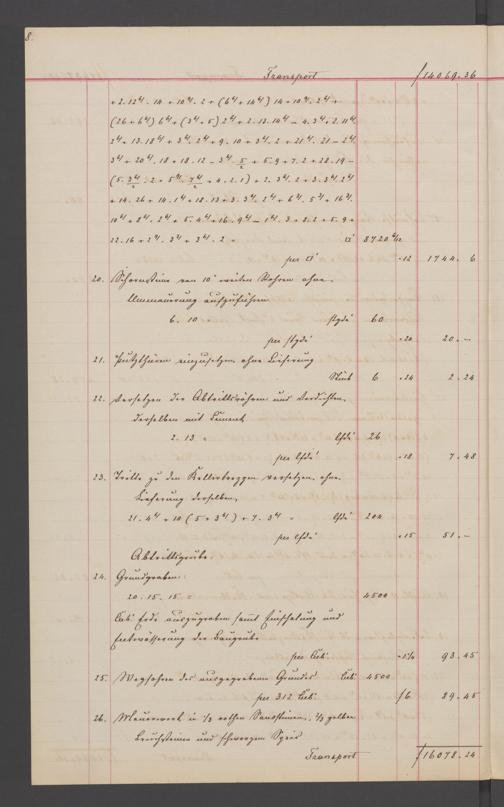 8.
Transport ƒ 14069.36
+2.12⁴.14 + 10⁴.2 + (6⁴+14⁴) 14 + 10⁴.2⁴ +
(26+6⁴) 6⁴ + (3⁴+5) 2⁴ + 2.13.14⁴ – 4.3⁴+2.11⁴
2⁴+13.18⁴ + 3⁴.2⁴ + 9.10 + 3⁴.2 + 21⁴.21 – 2⁴
3⁴+20⁴.18+18.12 – 3⁴ 5/2 + 5.9+7.2+28.19 –
(5.3⁴/2.2 + 5⁴.7⁴/2 + 4.2.1) + 2.3⁴.2+3.3⁴.2⁴
+14.26+14.1⁴+18.13+3.3⁴.2⁴+6⁴.5⁴+16⁴.
10⁴+8⁴.2⁴+5.4⁴+16.9⁴ – 1⁴.3+8.2+5.9+
22.16+2⁴.3⁴+3⁴.2 = □' 8720 6/12
per □' "12 1744.6
20. Schornsteine von 10" weiten Röhren ohne
Ummauerung aufzuführen
6.10 stgds' 60
per stgds' "20 20.–
21. Putzthüren einzusetzen ohne Lieferung
Stück 6 "24 2.24
22. Versetzen der Abtrittsröhren und Verdichten
derselben mit Cement
2.13 = lfds' 26
per lfds' "18 7.48
23. Tritte zu den Kellertreppen versetzen ohne
Lieferung derselben,
21.4⁴+10(5+3⁴)+7.3⁴ = lfds' 204
per lfds' "15 51.–
Abtrittsgrube.
24. Grundgraben:
20.15.15 = 4500
Cub' Erde auszugraben samt Einschalung und
Entwässerung der Baugrube
per Cub' "1¼ 93.45
25. Wegfahren des ausgegrabenen Grundes Cub' 4500
per 312 Cub' ƒ6 89.45
26. Mauerwerk in ½ rothen Sandsteinen, ½ gelben
Bruchsteinen und schwarzem Speis
Transport ƒ 16078.24